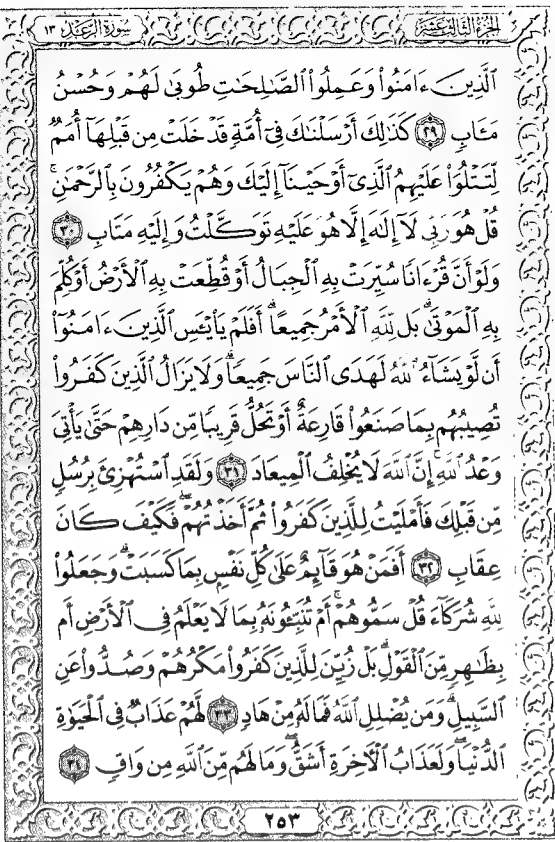 الجزء الثالث عشر
سورة الرعد ١٣
ٱلَّذِينَ ءَامَنُوا۟ وَعَمِلُوا۟ ٱلصَّٰلِحَٰتِ طُوبَىٰ لَهُمْ وَحُسْنُ
مَـَٔابٍ ٢٩ كَذَٰلِكَ أَرْسَلْنَٰكَ فِىٓ أُمَّةٍ قَدْ خَلَتْ مِن قَبْلِهَآ أُمَمٌ
لِّتَتْلُوَا۟ عَلَيْهِمُ ٱلَّذِىٓ أَوْحَيْنَآ إِلَيْكَ وَهُمْ يَكْفُرُونَ بِٱلرَّحْمَٰنِ ۚ
قُلْ هُوَ رَبِّى لَآ إِلَٰهَ إِلَّا هُوَ عَلَيْهِ تَوَكَّلْتُ وَإِلَيْهِ مَتَابِ ٣٠
وَلَوْ أَنَّ قُرْءَانًا سُيِّرَتْ بِهِ ٱلْجِبَالُ أَوْ قُطِّعَتْ بِهِ ٱلْأَرْضُ أَوْ كُلِّمَ
بِهِ ٱلْمَوْتَىٰ ۗ بَل لِّلَّهِ ٱلْأَمْرُ جَمِيعًا ۗ أَفَلَمْ يَا۟يْـَٔسِ ٱلَّذِينَ ءَامَنُوٓا۟
أَن لَّوْ يَشَآءُ ٱللَّهُ لَهَدَى ٱلنَّاسَ جَمِيعًا ۗ وَلَا يَزَالُ ٱلَّذِينَ كَفَرُوا۟
تُصِيبُهُم بِمَا صَنَعُوا۟ قَارِعَةٌ أَوْ تَحُلُّ قَرِيبًا مِّن دَارِهِمْ حَتَّىٰ يَأْتِىَ
وَعْدُ ٱللَّهِ ۚ إِنَّ ٱللَّهَ لَا يُخْلِفُ ٱلْمِيعَادَ ٣١ وَلَقَدِ ٱسْتُهْزِئَ بِرُسُلٍ
مِّن قَبْلِكَ فَأَمْلَيْتُ لِلَّذِينَ كَفَرُوا۟ ثُمَّ أَخَذْتُهُمْ ۖ فَكَيْفَ كَانَ
عِقَابِ ٣٢ أَفَمَنْ هُوَ قَآئِمٌ عَلَىٰ كُلِّ نَفْسٍۭ بِمَا كَسَبَتْ ۗ وَجَعَلُوا۟
لِلَّهِ شُرَكَآءَ قُلْ سَمُّوهُمْ ۚ أَمْ تُنَبِّـُٔونَهُۥ بِمَا لَا يَعْلَمُ فِى ٱلْأَرْضِ أَم
بِظَٰهِرٍ مِّنَ ٱلْقَوْلِ ۗ بَلْ زُيِّنَ لِلَّذِينَ كَفَرُوا۟ مَكْرُهُمْ وَصُدُّوا۟ عَنِ
ٱلسَّبِيلِ ۗ وَمَن يُضْلِلِ ٱللَّهُ فَمَا لَهُۥ مِنْ هَادٍ ٣٣ لَّهُمْ عَذَابٌ فِى ٱلْحَيَوٰةِ
ٱلدُّنْيَا ۖ وَلَعَذَابُ ٱلْءَاخِرَةِ أَشَقُّ ۖ وَمَا لَهُم مِّنَ ٱللَّهِ مِن وَاقٍ ٣٤
٢٥٣